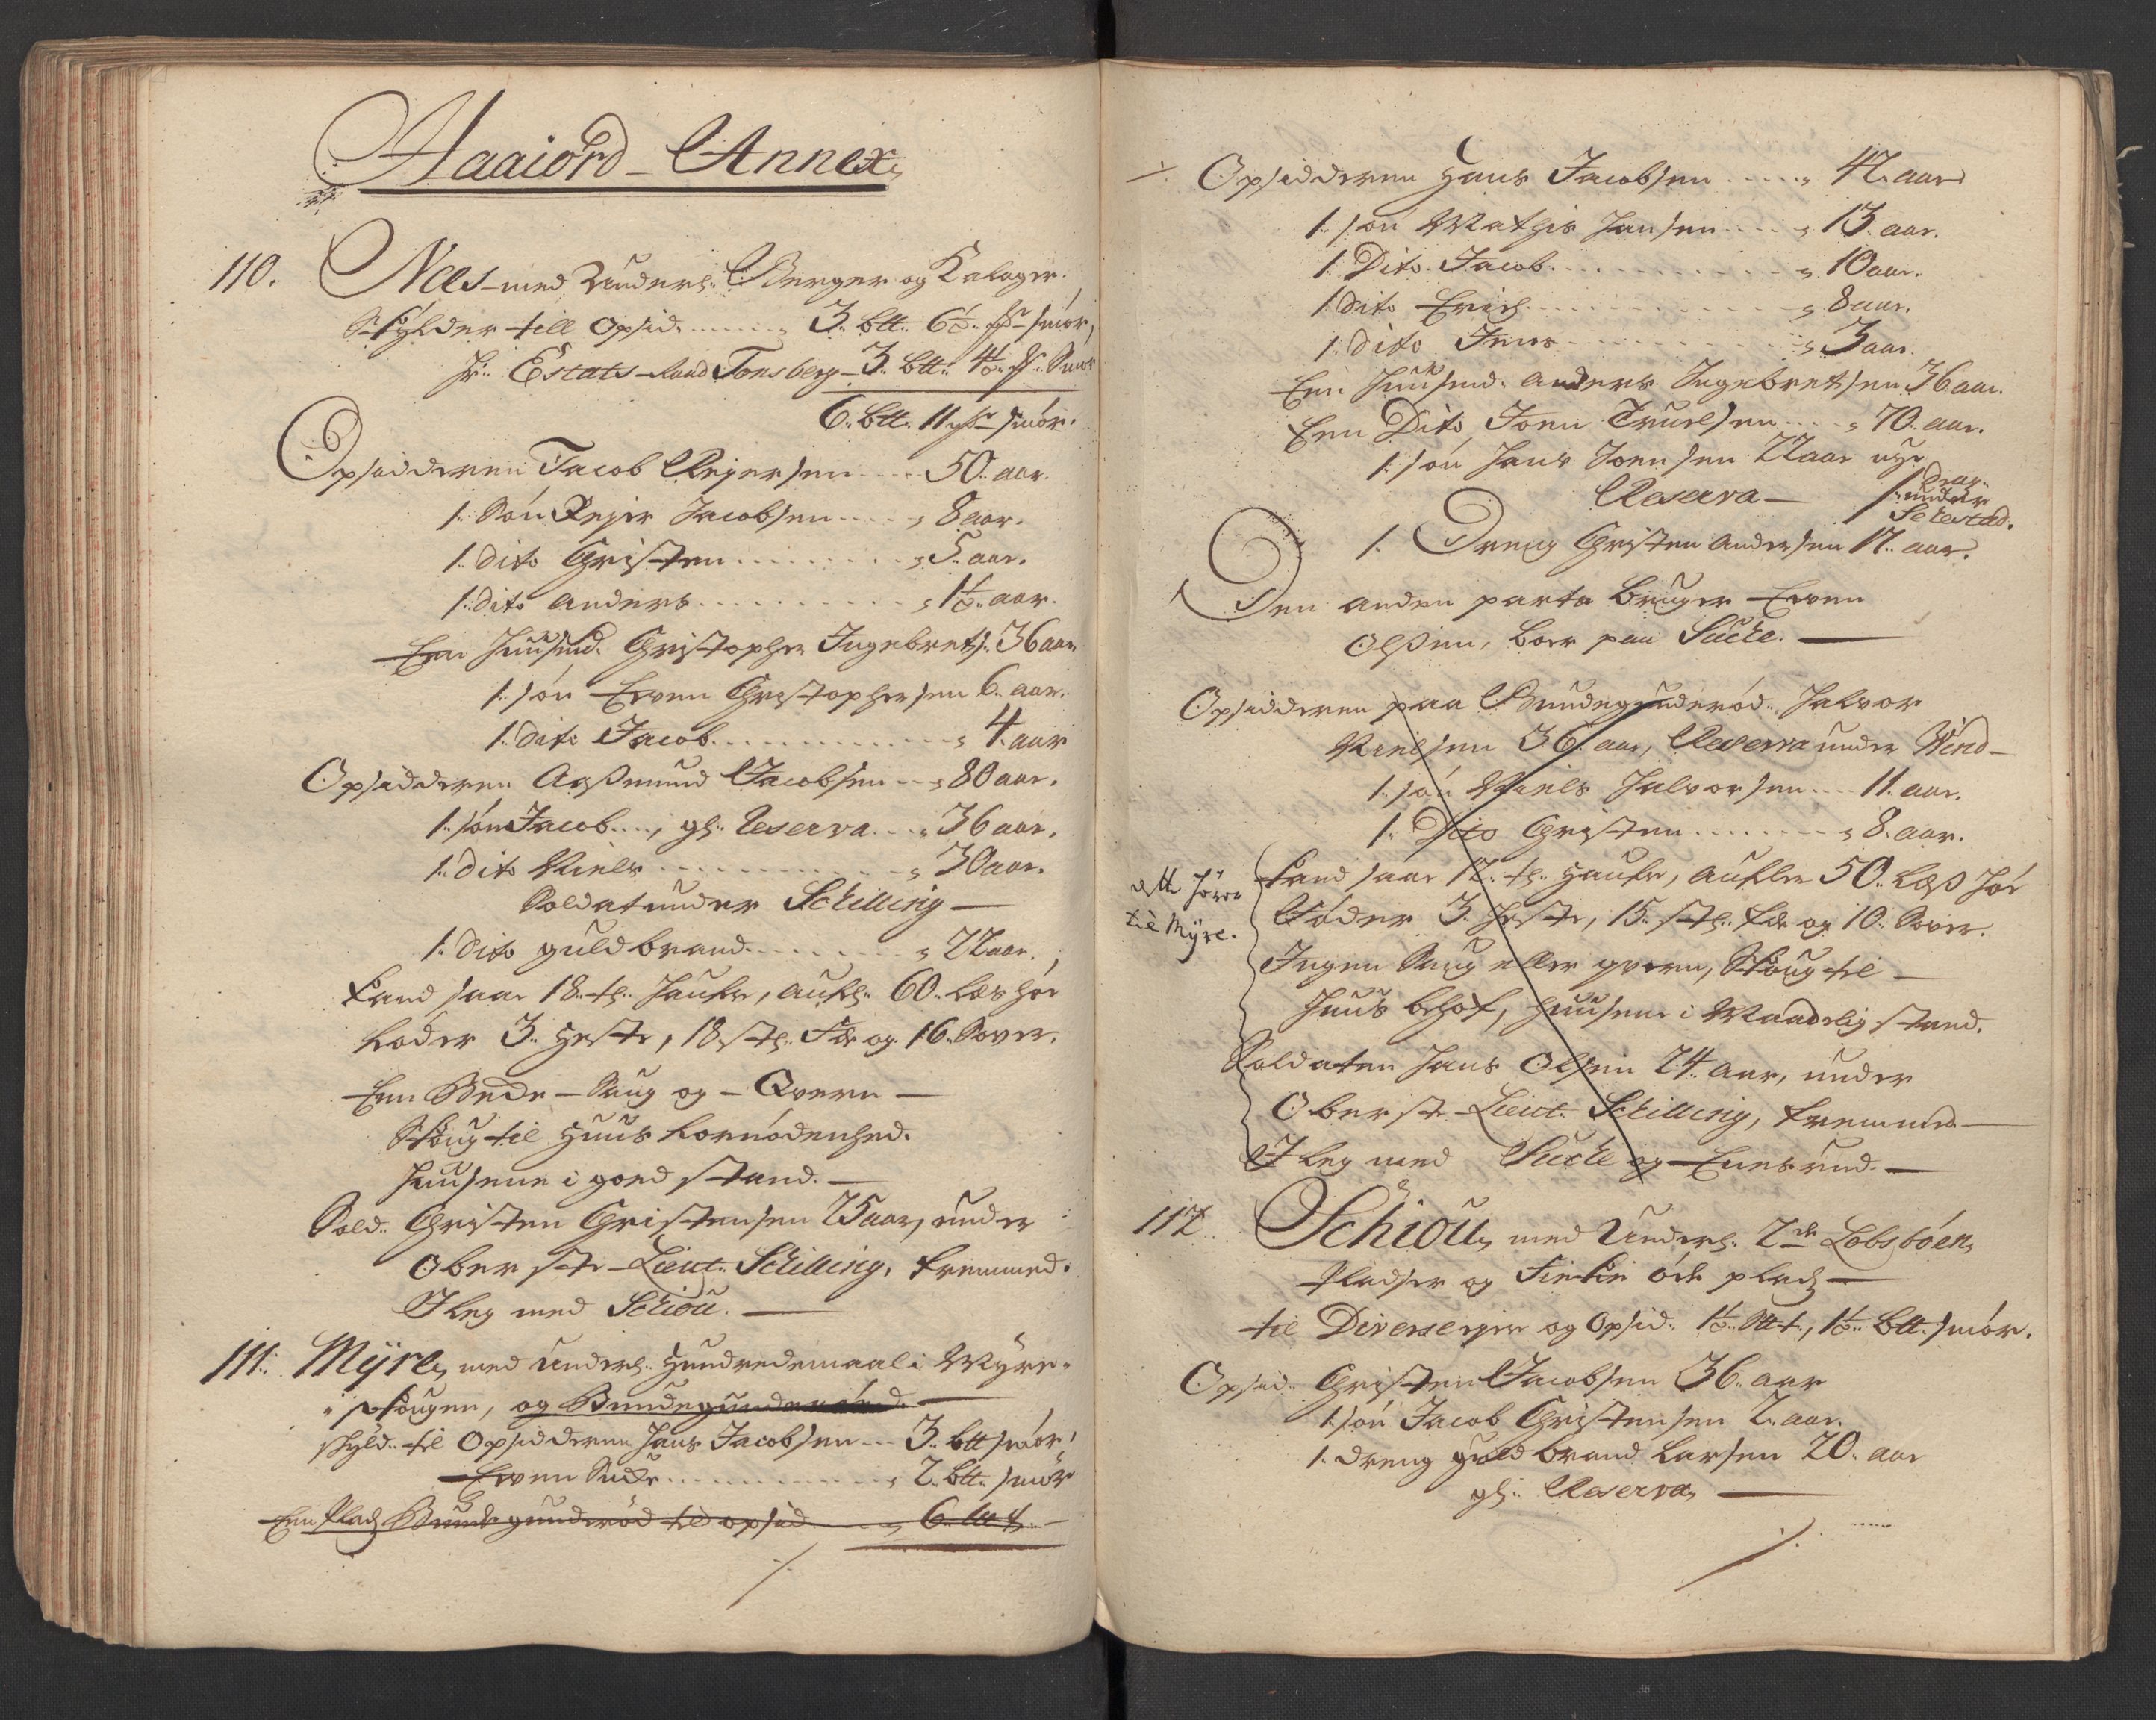 Haaiord - Annex,
110. Nees med Underl: Berger og Kalager.
Skylder till Opsid. ........ 3. btt. 6½. ℔r smør,
Hr. Estats-Raad Tonsberg - 3. btt. 4½. ℔r Smør
6. btt. 11. ℔r smør.
Opsidderen Jacob Rejersen ..... 50. aar.
1. Søn Rejer Jacobsen ..... 8 aar.
1. dito Christen ........ 5. aar.
1. dito Anders ........ 1½. aar.
Een Huusmd. Christopher Ingebrets: 36 aar
1. søn Ewen Christophersen 6. aar.
1. dito Jacob ........ 4. aar
Opsidderen Aaßmund Jacobsen ... 80 aar.
1. søn Jacob ...., gl: Reserva ... 36 aar.
1. dito Niels ........ 30 aar.
Soldat under Schilling —
1. dito Guldbrand ........ 22 aar.
Kand saae 18. td. Haufre, aufl: 60. Læs høe
foder 3. Heste, 18 stk: Fæ og 16. Sover.
Een Bede - Saug og - Qvern —
Skoug til Huus fornødenhed.
Huusene i goed stand. —
Sold. Christen Christensen 25 aar, under
Oberste-Lieut. Schilling, fremmed.
I Leg med Schiou. —
111. Myre, med Underl: Hundredemaal i Myre-
skougen, og Bundegunderød. —
skyld. til Opsidderen Hans Jacobsen ... 3. btt smør,
Ewen Sucke ........ 2. btt. smør
Een Plads Bundegunderød til opsid ..... 6.
./.
./. Opsidderen Hans Jacobsen ..... 42. aar
1. søn Mathis Hansen .... 13. aar.
1. Dito. Jacob. ........ 10 aar.
1. dito Erich ........ 8 aar.
1. dito Jens ........ 3 aar.
Een Huusmd. Anders Ingebretsen 36 aar.
Een Dito, Joen Truelsen .... 70. aar.
1. søn Hans Joensen 22 aar nye
Reserva — Drag.
under
Sehested.
1. Dreng Christen Andersen 17. aar.
Den anden parte bruger Ewen
Olßen, boer paa Sucke. —
Opsidderen paa Bundegunderød, Halvor
Nielsen 36. aar, Reserva under Wind-
1. søn Niels Halvorsen ... 11. aar.
1. Dito Christen ........ 8. aar.
dette hører
til Myre.
Kand saae 12. td. Haufre, aufler 50. Læß høe
Føder 3. Heste, 15. stk: Fæ og 10. Sover.
Ingen Saug eller qvern, Skoug til —
Huus behof, Huusene i Maadelig stand.
Soldaten Hans Olsen 24. aar, under
Oberst-Lieut. Schilling, fremmed —
I Leg med Sucke og Enesrud. —
112. Schiou, med Underl: 2de Lobsbøen,
Pladser og Finkin øde plads —
til Diverse eyere og Opsid. 1½. btt., 1½. btt. smør.
Opsid. Christen Jacobsen 36. aar
1. søn Jacob Christensen 2. aar.
1. dreng Guldbrand Larsen 20. aar
gl: Reserva, —
./.